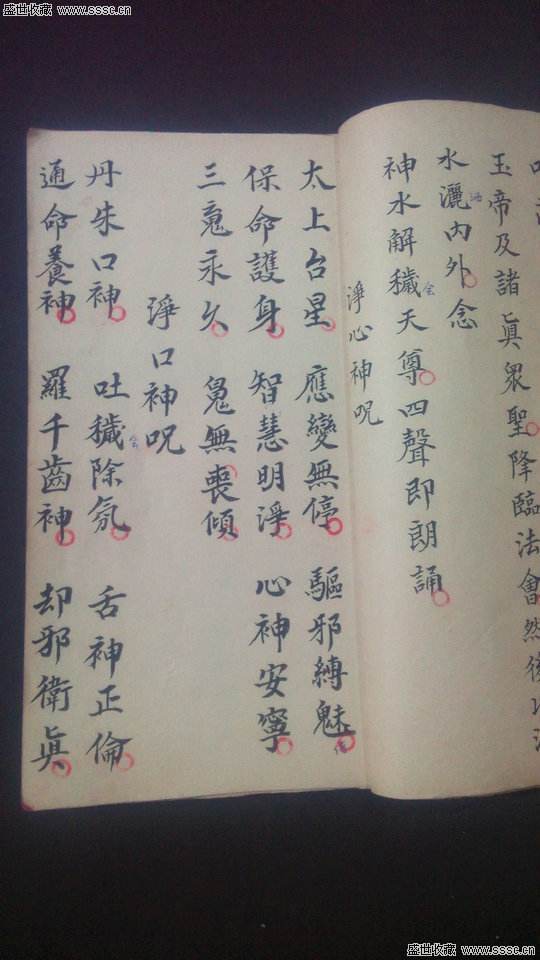 盛世收藏 www.sssc.cn
盛世收藏 www.sssc.cn
玉帝及諸眞眾聖降臨法會然後以法
水灑內外念
神水解穢天尊四聲即朗誦
淨心神呪
太上台星 應變無停 驅邪縛魅
保命護身 智慧明淨 心神安寧
三䰟永久 䰟無喪傾
淨口神呪
丹朱口神 吐穢除氛 舌神正倫
通命養神 羅千齒神 却邪衛眞
盛世收藏 www.sssc.cn
盛世收藏 www.sssc.cn